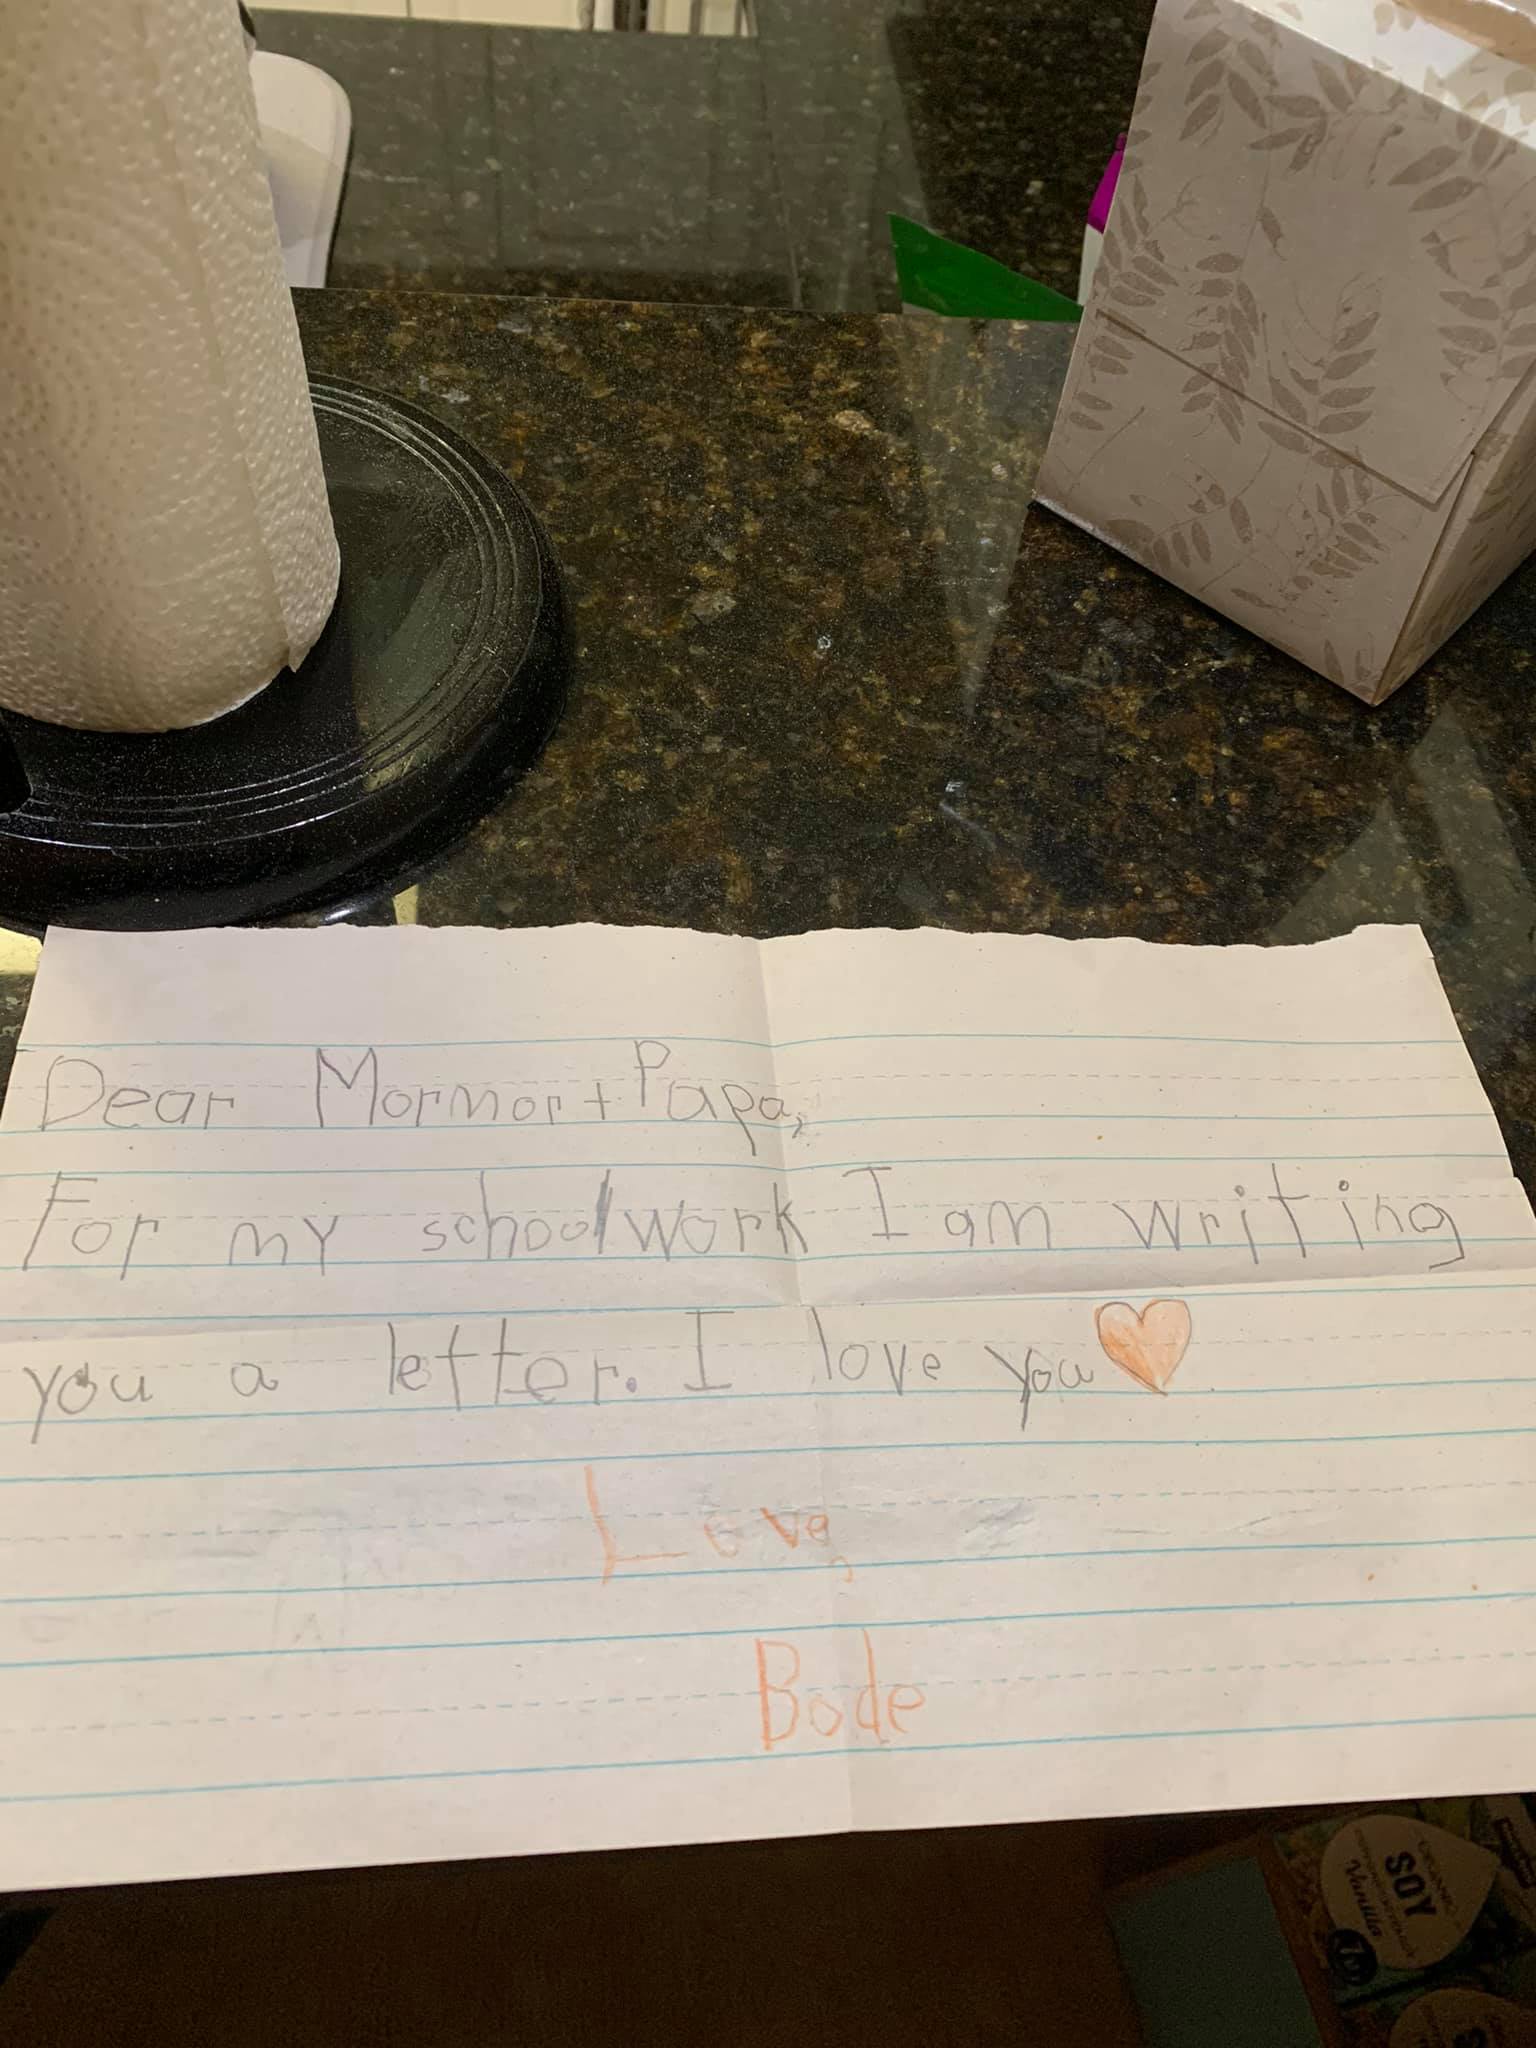 Dear Mormor + Papa,
For my schoolwork I am writing
you a letter. I love you
Love,
Bode
ORGANIC
SOY
Vanilla